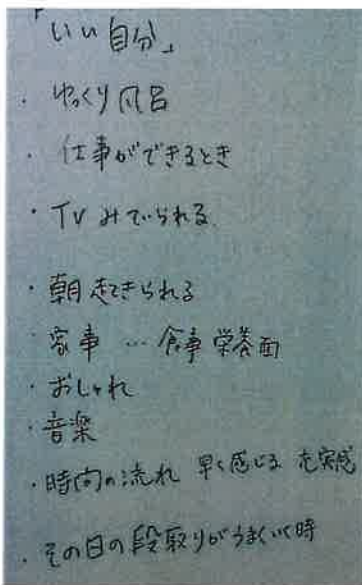 「いい自分」
・ゆっくり風呂
・仕事ができるとき
・TVみていられる
・朝起きられる
・家事…食事栄養面
・おしゃれ
・音楽
・時間の流れ 早く感じる 充実感
・その日の段取りがうまくいく時